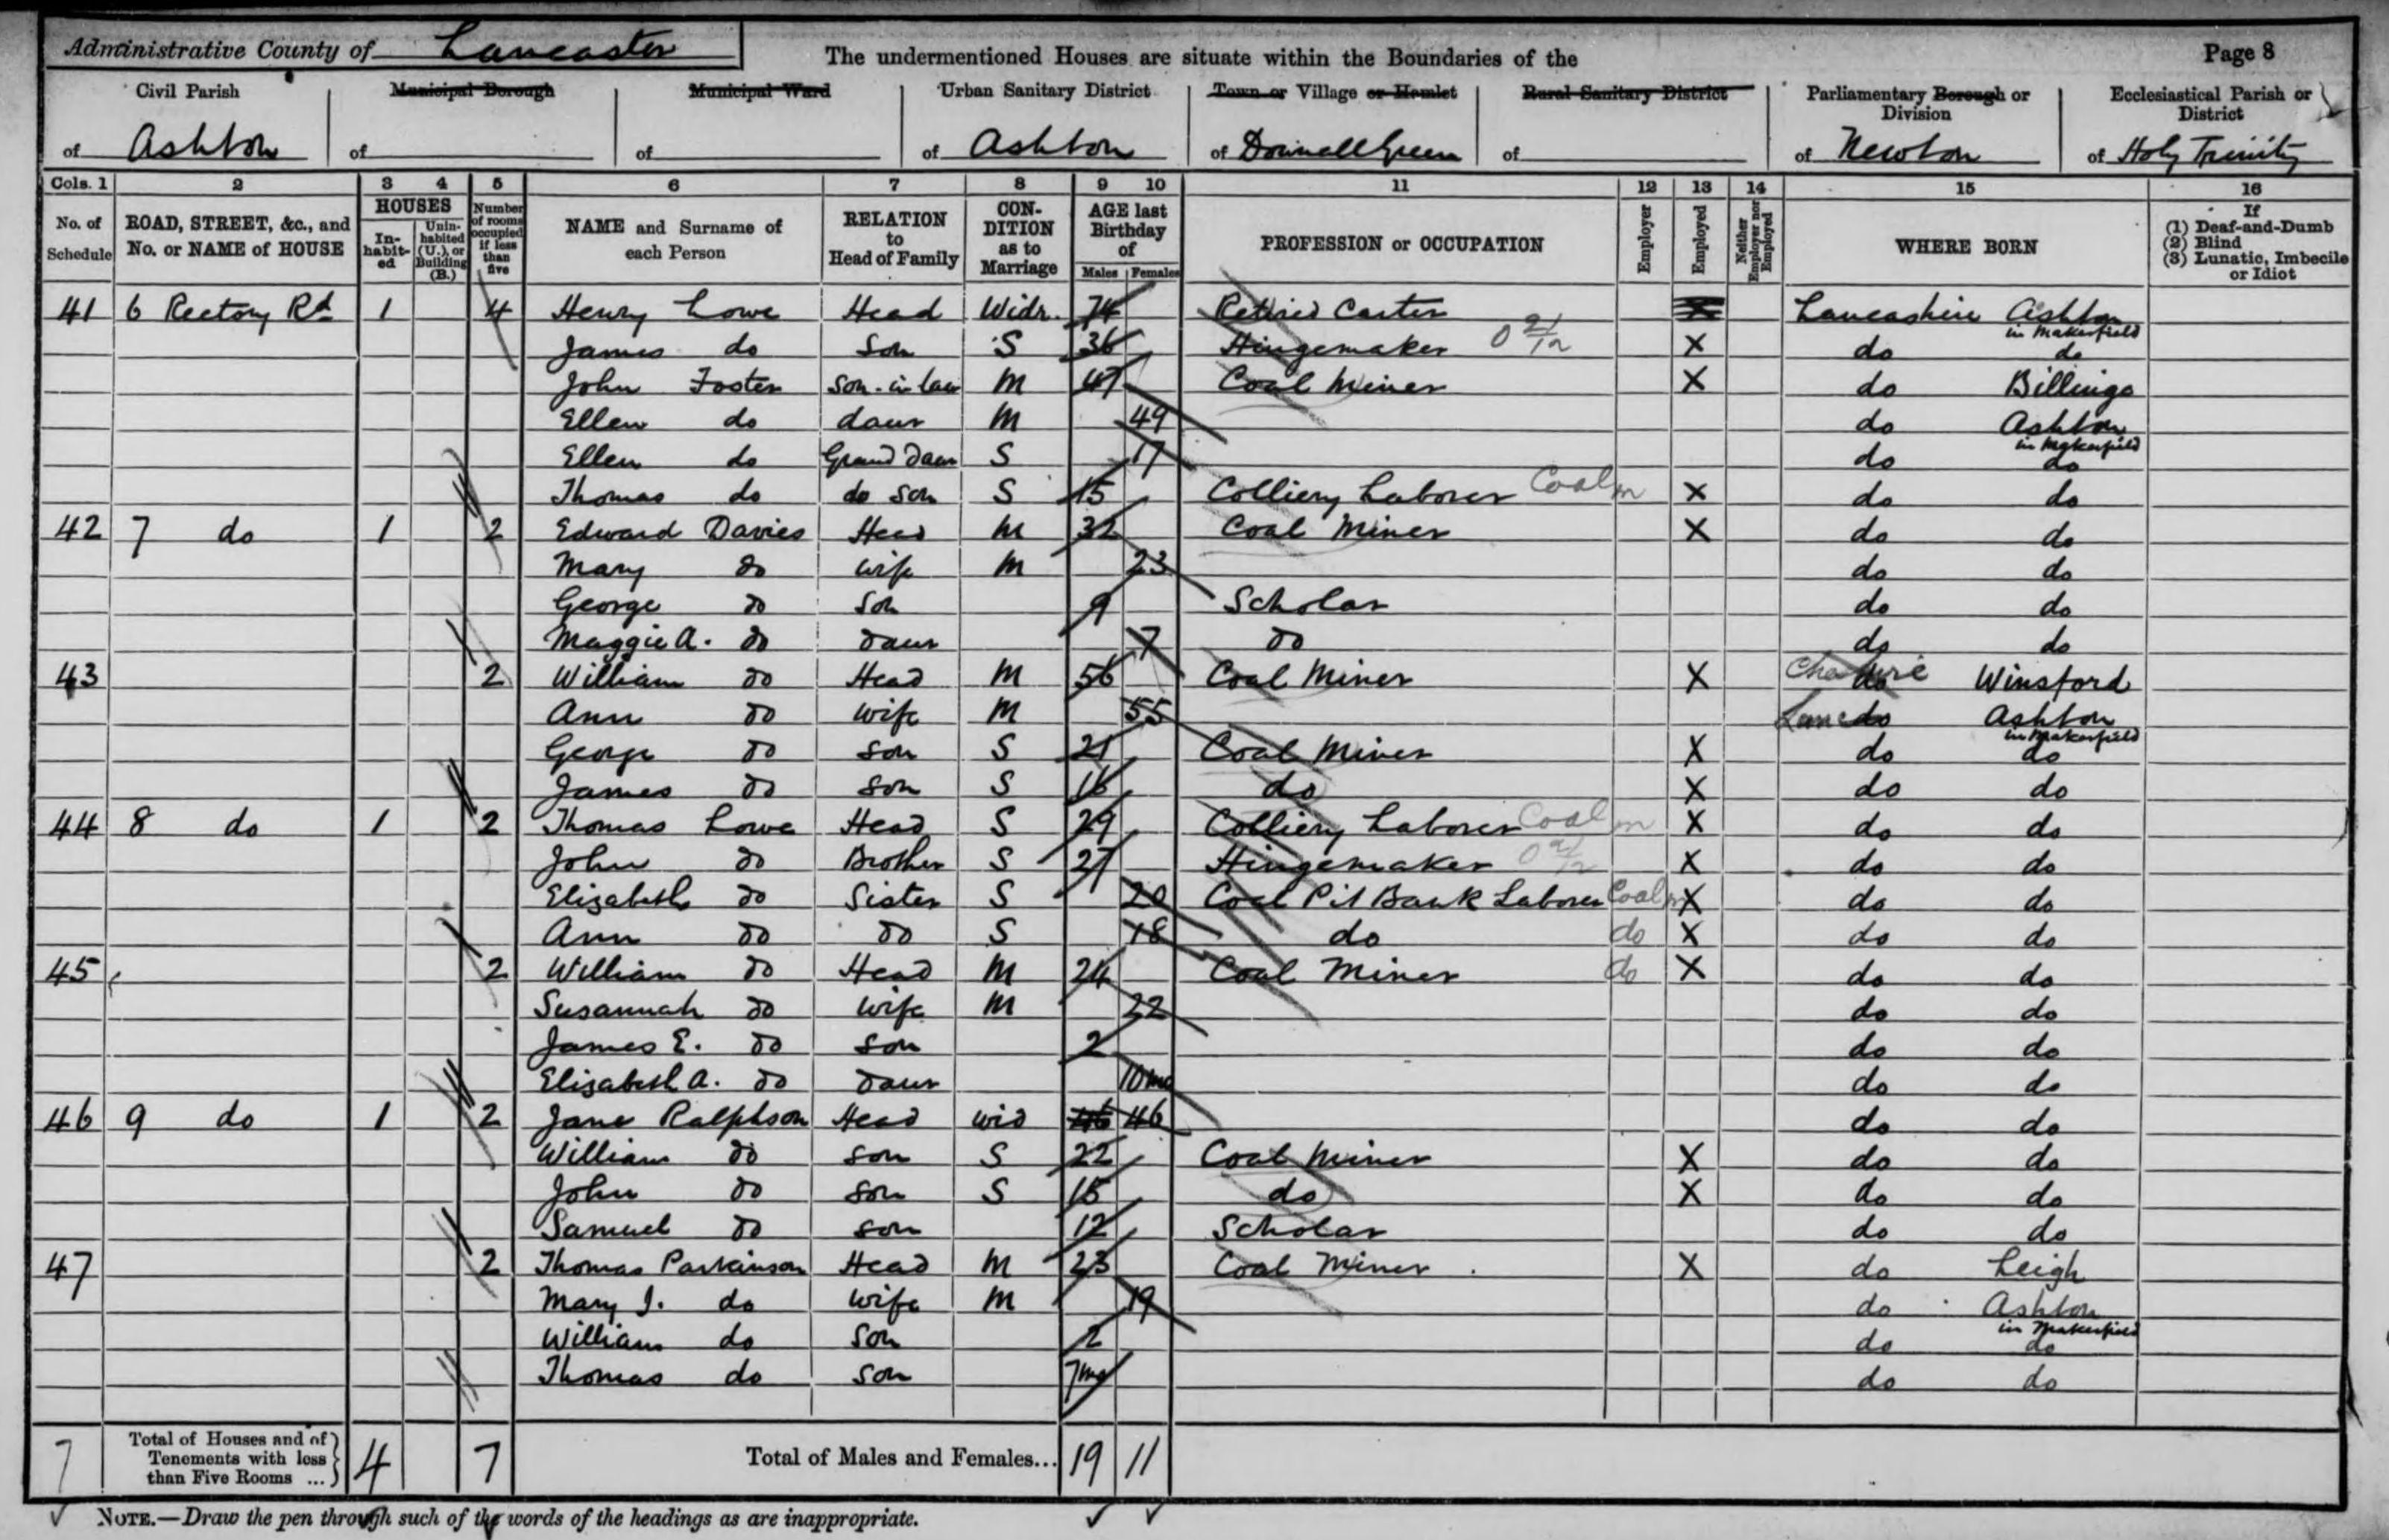 Administrative County of Lancaster The undermentioned Houses are situate within the Boundaries of the Page 8
Civil Parish Municipal Borough Municipal Ward Urban Sanitary District Town or Village or Hamlet Rural Sanitary District Parliamentary Borough or Division Ecclesiastical Parish or District
of Ashton of of of Ashton of Downall Green of of Newton of Holy Trinity
Cols. 1 2 3 4 5 6 7 8 9 10 11 12 13 14 15 16
No. of Schedule ROAD, STREET, &c., and No. or NAME of HOUSE HOUSES In-habit-ed Unin-habited (U.), or Building (B.) Number of rooms occupied if less than five NAME and Surname of each Person RELATION to Head of Family CON-DITION as to Marriage AGE last Birthday of Males Females PROFESSION or OCCUPATION Employer Employed Neither Employer nor Employed WHERE BORN If (1) Deaf-and-Dumb (2) Blind (3) Lunatic, Imbecile or Idiot
41 6 Rectory Rd 1 4 Henry Lowe Head Widr. 74 Retired Carter X Lancashire Ashton in Makerfield
James do Son S 36 Hingemaker X do do
John Foster Son-in-law M 47 Coal Miner X do Billinge
Ellen do daur M 49 do Ashton in Makerfield
Ellen do Grand Daur S 17 do do
Thomas do do Son S 15 Colliery Laborer Coal m X do do
42 7 do 1 2 Edward Davies Head M 32 Coal Miner X do do
Mary do wife M 23 do do
George do Son 9 Scholar do do
Maggie A. do Daur 7 do do do
43 2 William do Head M 56 Coal Miner X do Cheshire Winsford
Ann do Wife M 55 do Lanc Ashton in Makerfield
George do Son S 21 Coal Miner X do do
James do Son S 16 do X do do
44 8 do 1 2 Thomas Lowe Head S 29 Colliery Laborer Coal m X do do
John do Brother S 27 Hingemaker X do do
Elizabeth do Sister S 20 Coal Pit Bank Laborer Coal m X do do
Ann do do S 18 do do X do do
45 2 William do Head M 24 Coal Miner do X do do
Susannah do Wife M 22 do do
James E. do Son 2 do do
Elizabeth A. do Daur 10 mo do do
46 9 do 1 2 Jane Ralphson Head Wid 46 46 do do
William do Son S 22 Coal Miner X do do
John do Son S 15 do X do do
Samuel do Son 12 Scholar do do
47 2 Thomas Parkinson Head M 23 Coal Miner X do Leigh
Mary J. do Wife M 19 do Ashton in Makerfield
William do Son 2 do do
Thomas do Son 7 mo do do
7 Total of Houses and of Tenements with less than Five Rooms ... 4 7 Total of Males and Females... 19 11
NOTE.—Draw the pen through such of the words of the headings as are inappropriate.